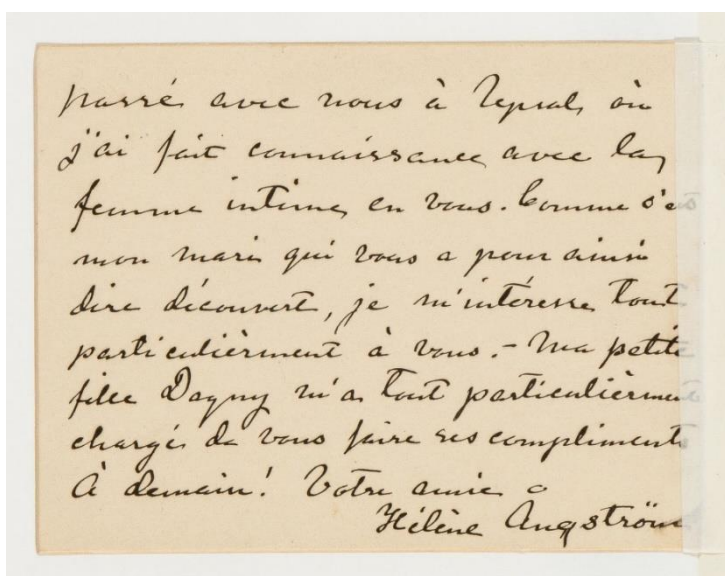 passé avec nous à Upsal, où
j'ai fait connaissance avec la
femme intime en vous. Comme s'e
mon mari qui vous a pour ainsi
dire découvert, je m'intéresse tout
particulièrment à vous. - Ma petite
fille Dagny m'a tout particulièrmen
chargée de vous faire ses compliments
À demain! Votre amie
Hélène Angström